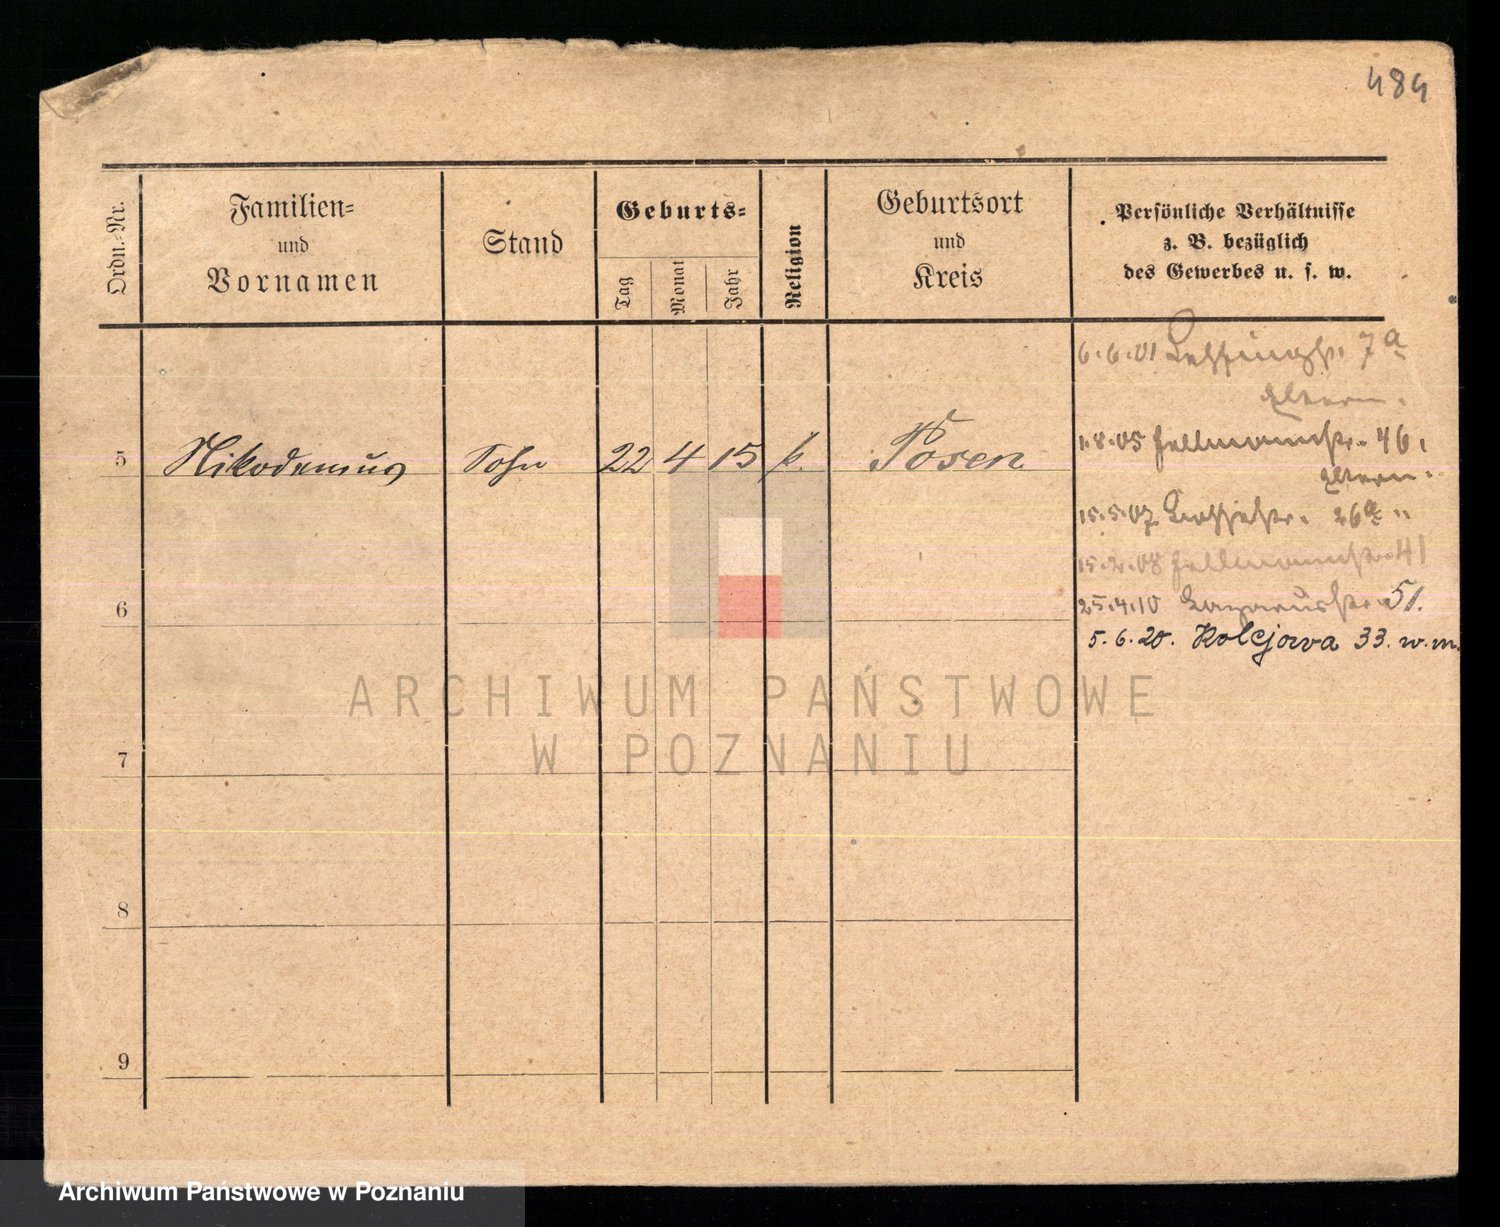 484
Ordn.-Nr.
Familien-
und
Vornamen
Stand
Geburts-
Tag
Monat
Jahr
Religion
Geburtsort
und
Kreis
Persönliche Verhältnisse
z. B. bezüglich
des Gewerbes u. s. w.
6.6.01 Lessingstr. 7a
Eltern.
1.8.05 Hellmannstr. 46,
Eltern.
5 Nikodemus Sohn 22 4 15 k. Posen
15.5.07 26a "
15.2.08 Hellmannstr. 41
6
25.4.10 Lazarusstr. 51.
5.6.20. Kolejowa 33. w.m.
ARCHIWUM PAŃSTWOWE
W POZNANIU
7
8
9
Archiwum Państwowe w Poznaniu